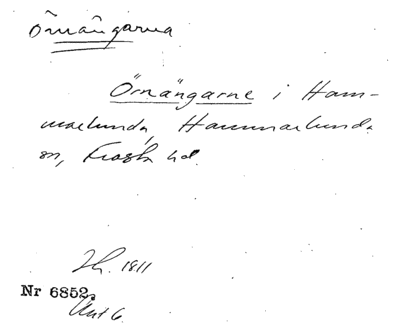 Örnängarna
Örnängarne i Ham-
marlunda, Hammarlunda
sn, Frosta hd.
1811
Nr 6852.